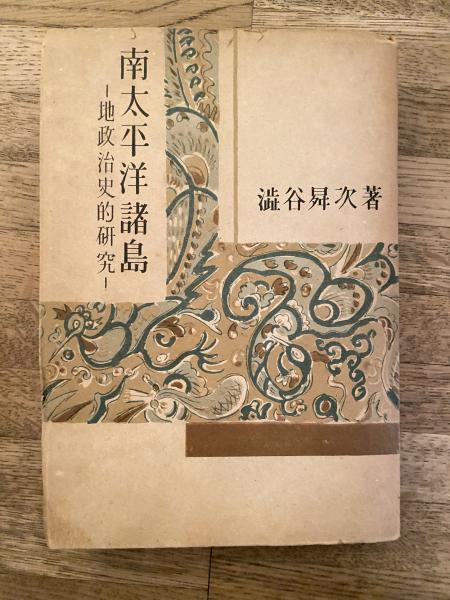 南太平洋諸島
－地政治史的研究－
澁谷昇次著